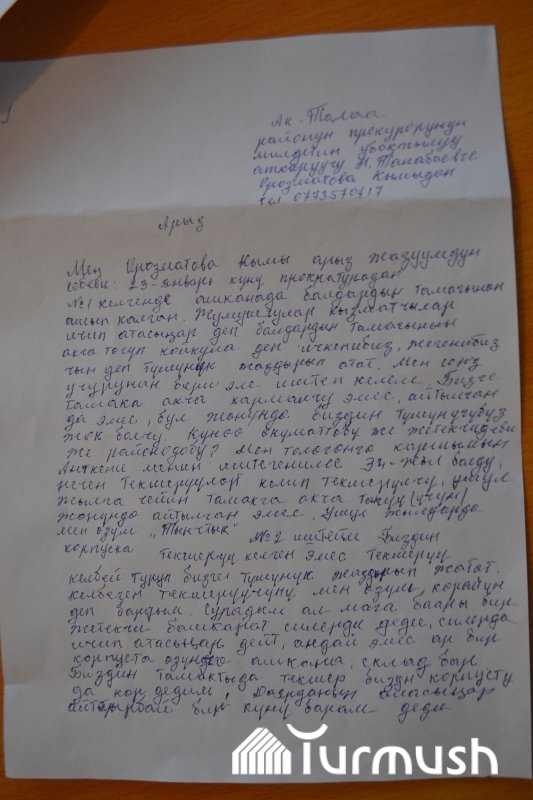 Ак-Талаа
район прокурорунун
милдетин убактылуу
аткаруучу Н. Тамабаевге
Орозматова Кымыдан
тел 0773570717
Арыз
Мен Орозматова Кымы арыз жазуумдун
себеби: 23-январь күнү прократурадан
№1 келгенде ашканада балдардын тамагынан
ашып калган. Жумушчулар кызматчылар
ичип атасыңар деп балдардын тамагынын
акча төгүп койкула деп ичкенибиз, жегенибиз
чын деп түшүнүк жаздырып атат. Мен союз
учурунан бери эле иштеп келем. Бизге
тамака акча кармалчу эмес, айтылган
да эмес, бул жөнүндө биздин түшүнүгүбүз
жок болчу. Күнөө өкүматтобу же жетекчидеби
же районодобу? Мен төлөгөнгө каршымын
Анткени менин иштегениме 34-жыл болду,
нечен текшерүүлөр келип текшерүүчү, ушул
жылга чейин тамакга акча төгүү (үчүн)
жөнүндө айтылган эмес. Ушул жылдарда
мен өзүм „Тынчтык" №2 иштейм Биздин
корпуска текшерүү келген эмес текшерүү
келбей туруп бизге түшүнүк жаздырып жатат.
келбеген текшерүүчүнү мен өзүм көрөйүн
деп бардым. Сурадым ал мага баары бир
жетекчи башкарат силерди деди, силерда
ичип атасыңар дейт, андай эмес ар бир
корпуста өзүнчө ашкана, склад бар
Биздин тамактыда текшер биздн корпусту
да көр дедим, Даярданып аласыңар
айтпай бир күнү барам деди
Turmush